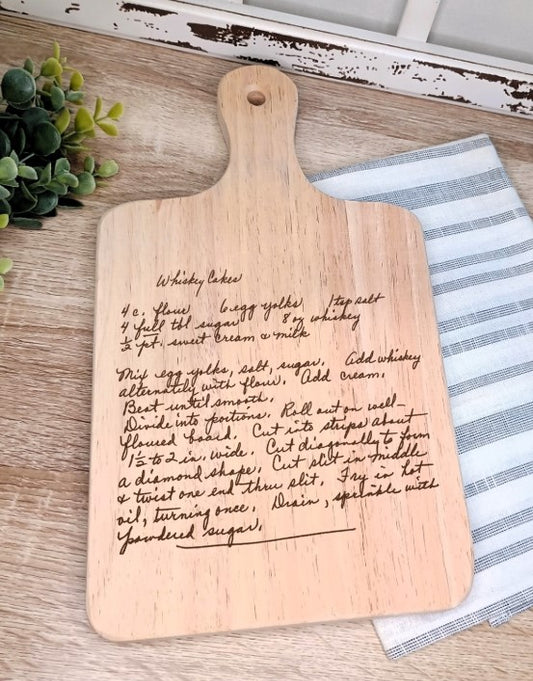 Whiskey Cakes
4 c. flour 6 egg yolks 1 tsp salt
4 full tbl sugar 8 oz whiskey
1/2 pt. sweet cream & milk
Mix egg yolks, salt, sugar. Add whiskey
alternately with flour. Add cream.
Beat until smooth.
Divide into portions. Roll out on well-
floured board. Cut into strips about
1 1/2 to 2 in. wide. Cut diagonally to form
a diamond shape. Cut slit in middle
& twist one end thru slit. Fry in hot
oil, turning once. Drain, sprinkle with
powdered sugar.